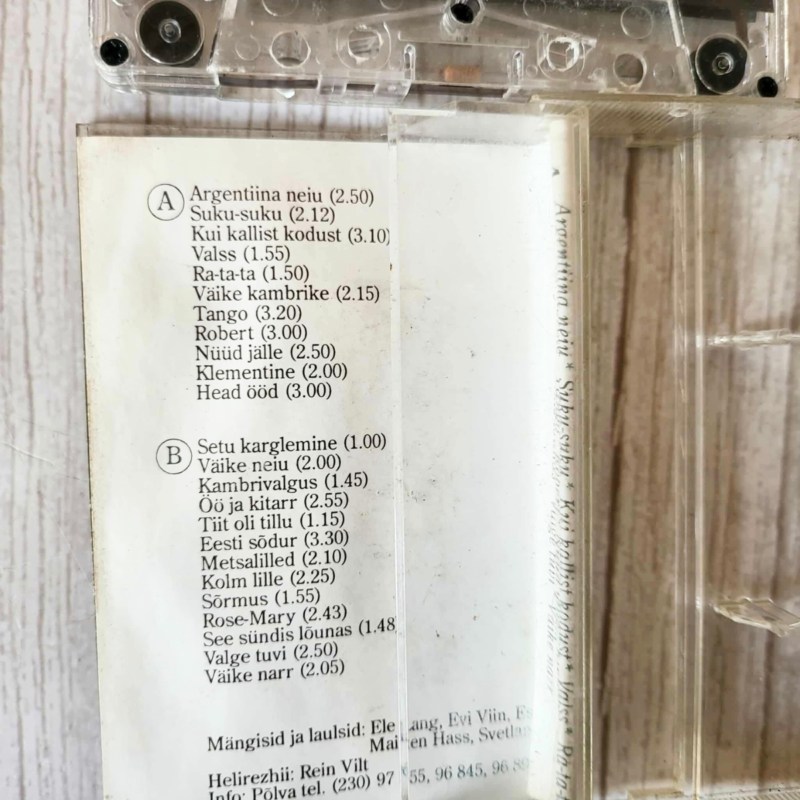 A
Argentiina neiu (2.50)
Suku-suku (2.12)
Kui kallist kodust (3.10)
Valss (1.55)
Ra-ta-ta (1.50)
Väike kambrike (2.15)
Tango (3.20)
Robert (3.00)
Nüüd jälle (2.50)
Klementine (2.00)
Head ööd (3.00)
B
Setu karglemine (1.00)
Väike neiu (2.00)
Kambrivalgus (1.45)
Öö ja kitarr (2.55)
Tiit oli tillu (1.15)
Eesti sõdur (3.30)
Metsalilled (2.10)
Kolm lille (2.25)
Sõrmus (1.55)
Rose-Mary (2.43)
See sündis lõunas (1.48
Valge tuvi (2.50)
Väike narr (2.05)
Mängisid ja laulsid: Ele Evi Viin,
Hass,
Helirezhii: Rein Vilt
Info: Põlva tel. (230) 97 55, 96 845, 96
A Argentiina neiu * Suku-suku * Kui kallist kodust * Valss * Ra-ta-